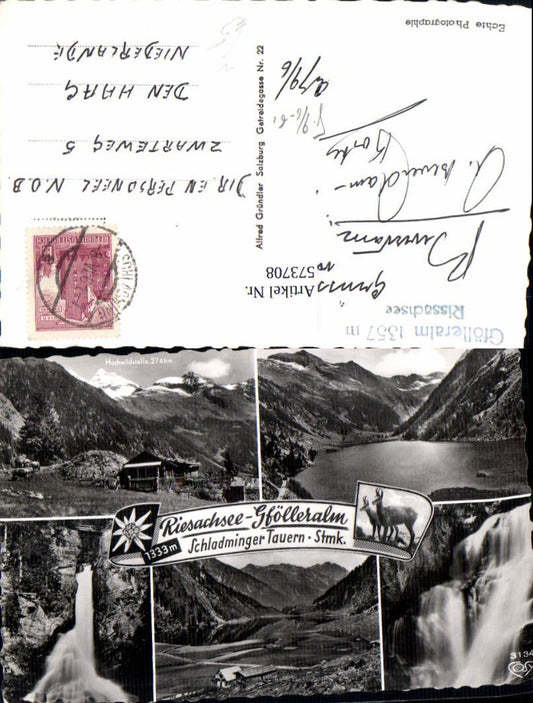 Echte Photographie
Gfölleralm 1357 m
Rissachsee
Artikel Nr.
573708
Alfred Gründler Salzburg Getreidegasse Nr. 22
DIR. EN PERSONEEL N.O.B.
ZWARTEWEG 5
DEN HAAG
NIEDERLANDE
Hochwildstelle, 2746m
Riesachsee-Gfölleralm
1333m
Schladminger Tauern · Stmk.
3134